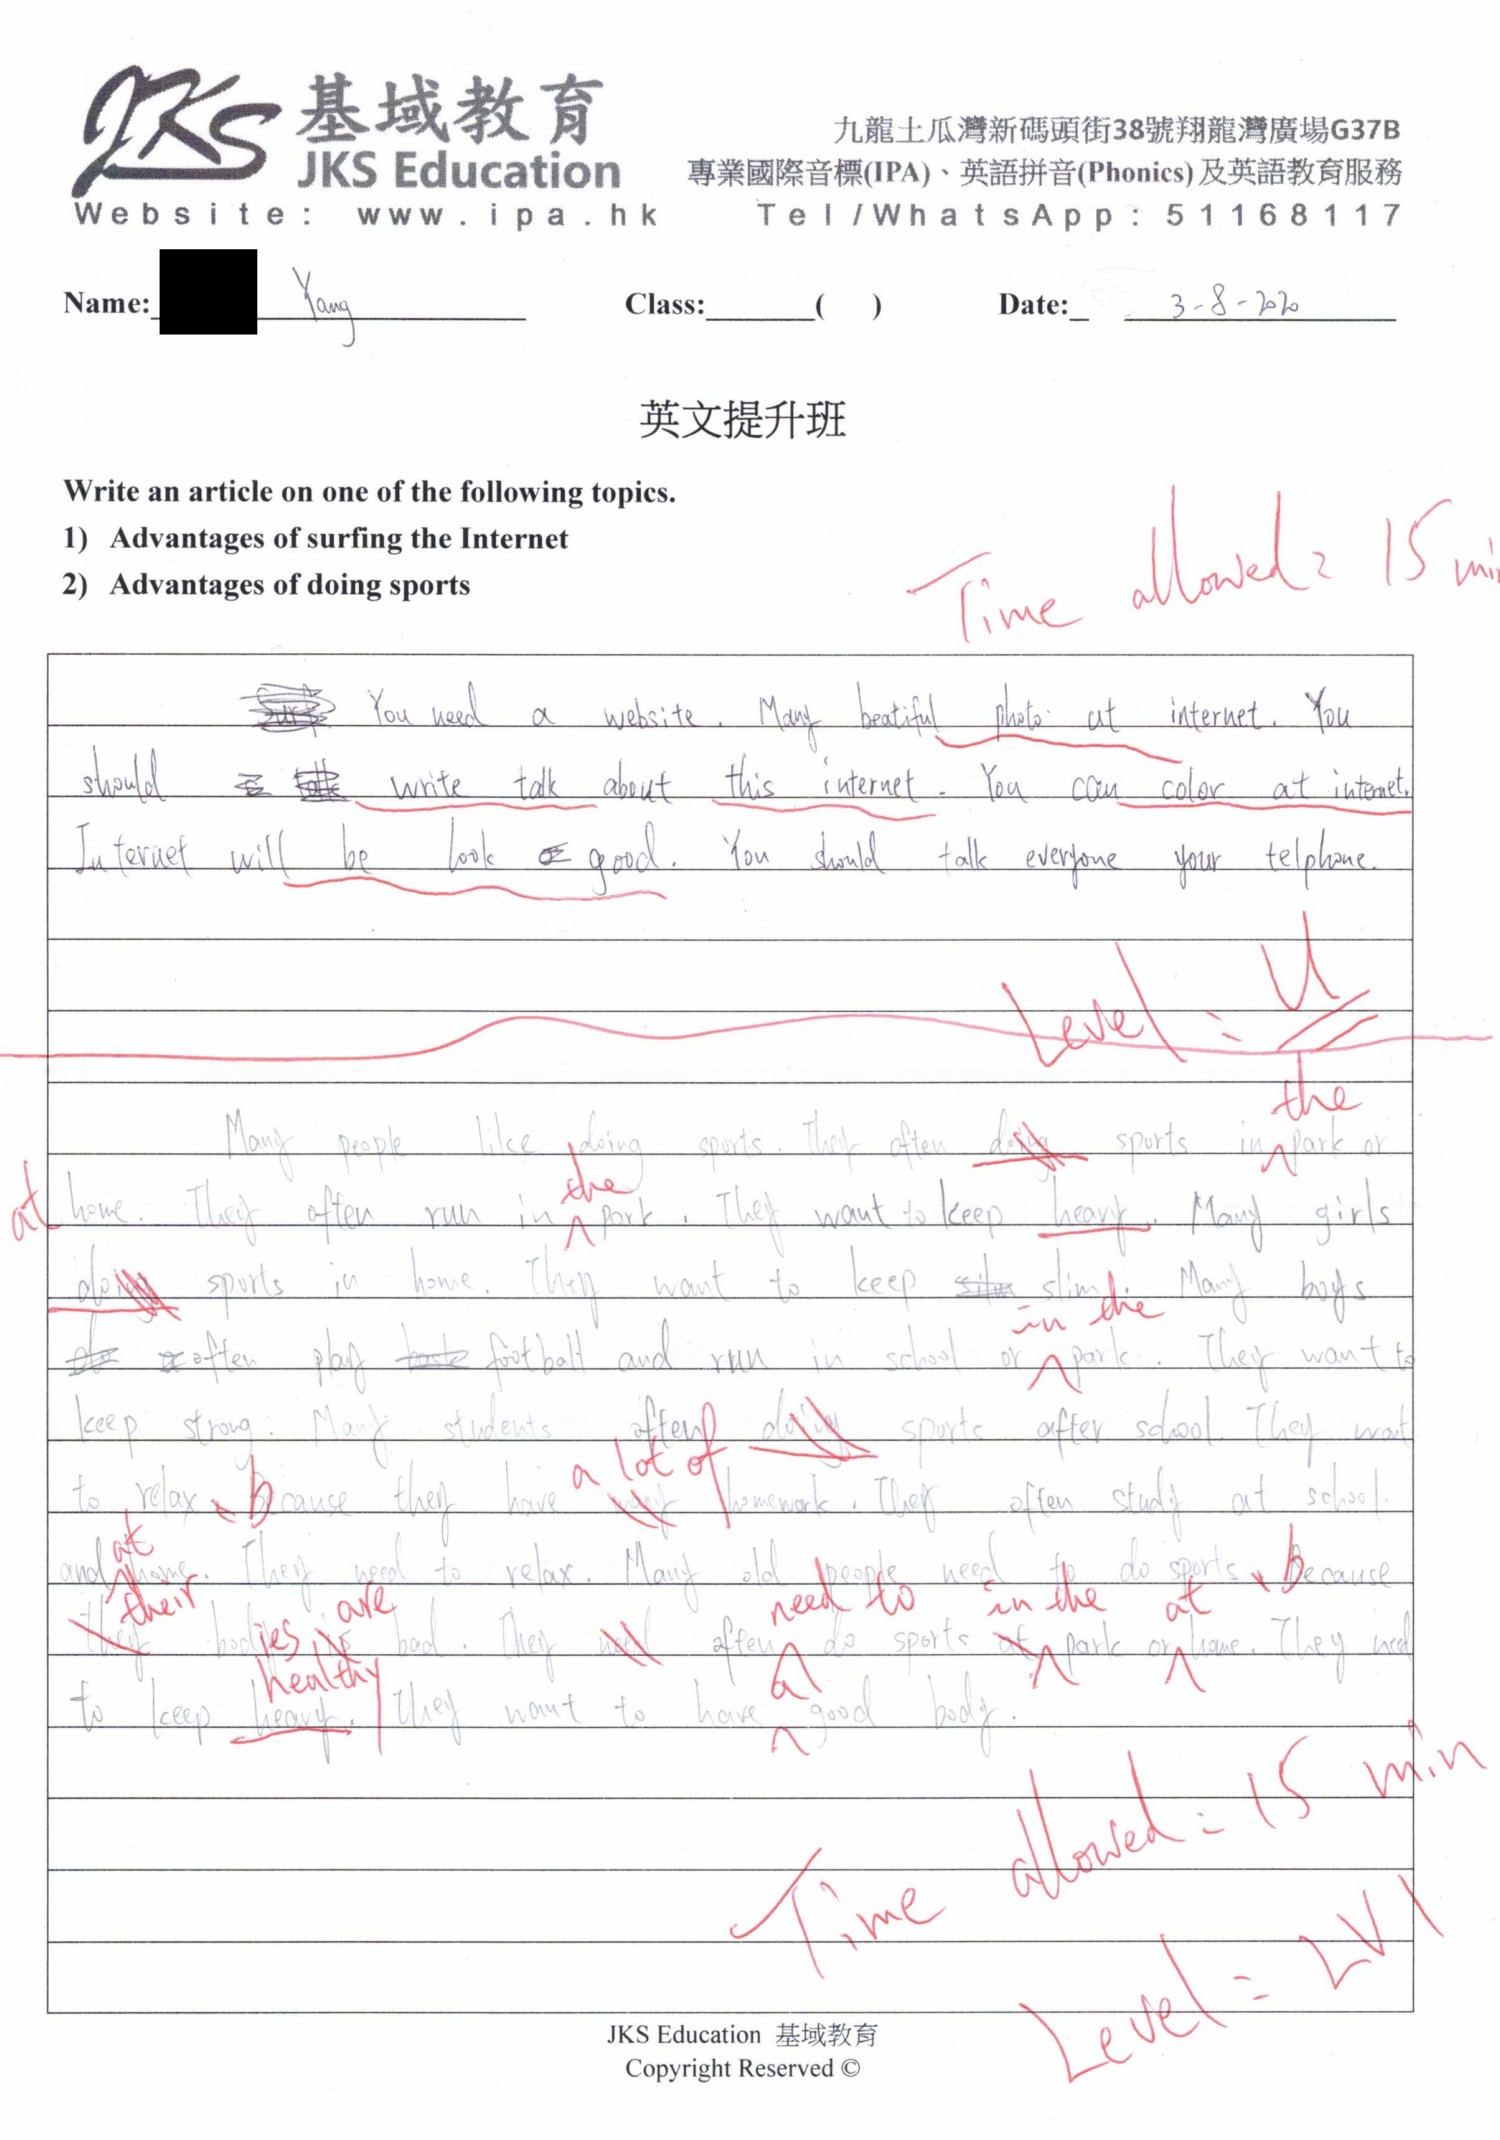 JKS 基域教育
JKS Education
九龍土瓜灣新碼頭街38號翔龍灣廣場G37B
專業國際音標(IPA)、英語拼音(Phonics)及英語教育服務
Website: www.ipa.hk Tel/WhatsApp: 51168117
Name: Yang Class: ( ) Date: 3-8-2020
英文提升班
Write an article on one of the following topics.
1) Advantages of surfing the Internet
2) Advantages of doing sports
Time allowed = 15 min
You need a website. Many beatiful photo at internet. You
should write talk about this internet. You can color at internet.
Internet will be look good. You should talk everyone your telphone.
Level = U
the
Many people like doing sports. They often doing sports in park or
at the
home. They often run in park. They want to keep heavy. Many girls
doing sports in home. They want to keep slim. Many boys
in the
often play football and run in school or park. They want to
keep strong. Many students often doing sports after school. They want
a lot of
to relax. b Because they have many homework. They often study at school.
at
and home. They need to relax. Many old people need to do sports. b Because
their ies are need to in the at
they body is bad. They need often do sports at park or home. They need
healthy a
to keep heavy. They want to have good body.
Time allowed = 15 min
Level = LV1
JKS Education 基域教育
Copyright Reserved ©